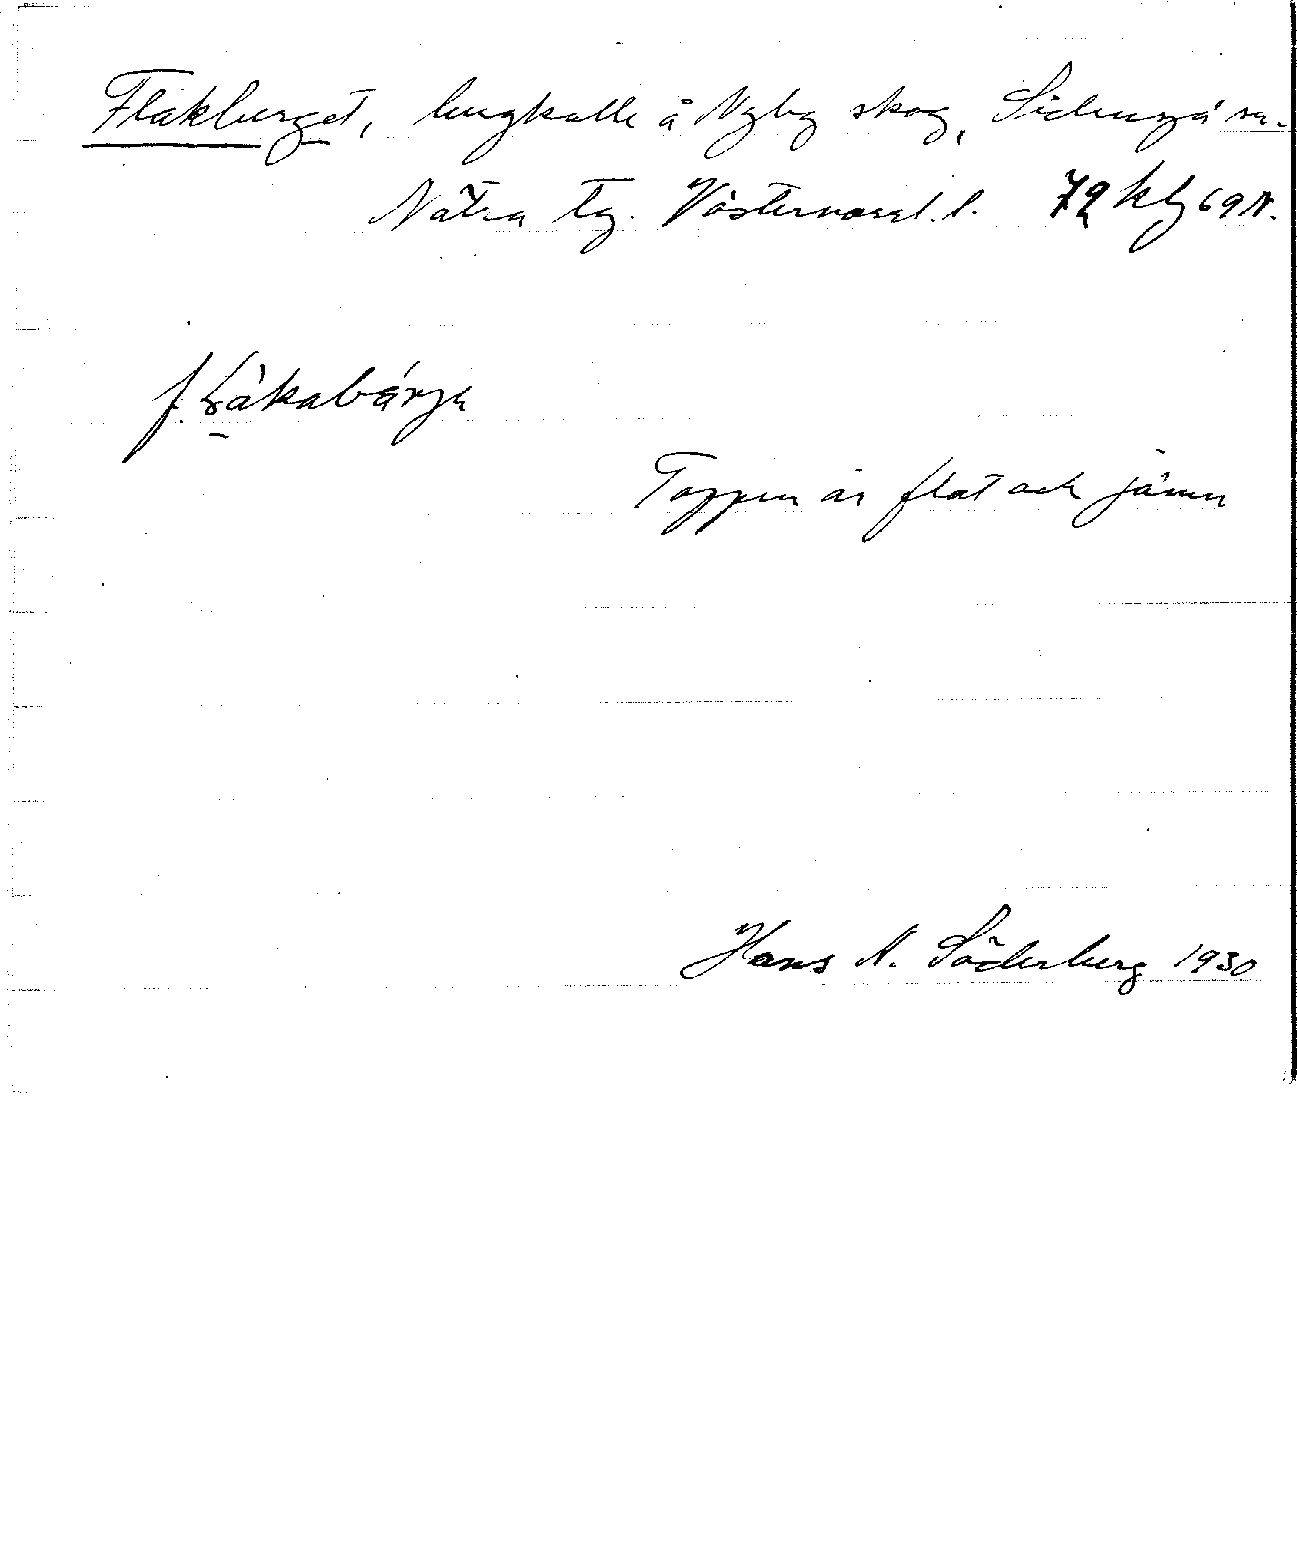 Flakberget, bergkulle å Nyby skog, Sidensjö sn.
Nätra tg. Västernorrl. l. 72 kbl 69 N.
Toppen är flat och jämn
Hans N. Söderberg 1930